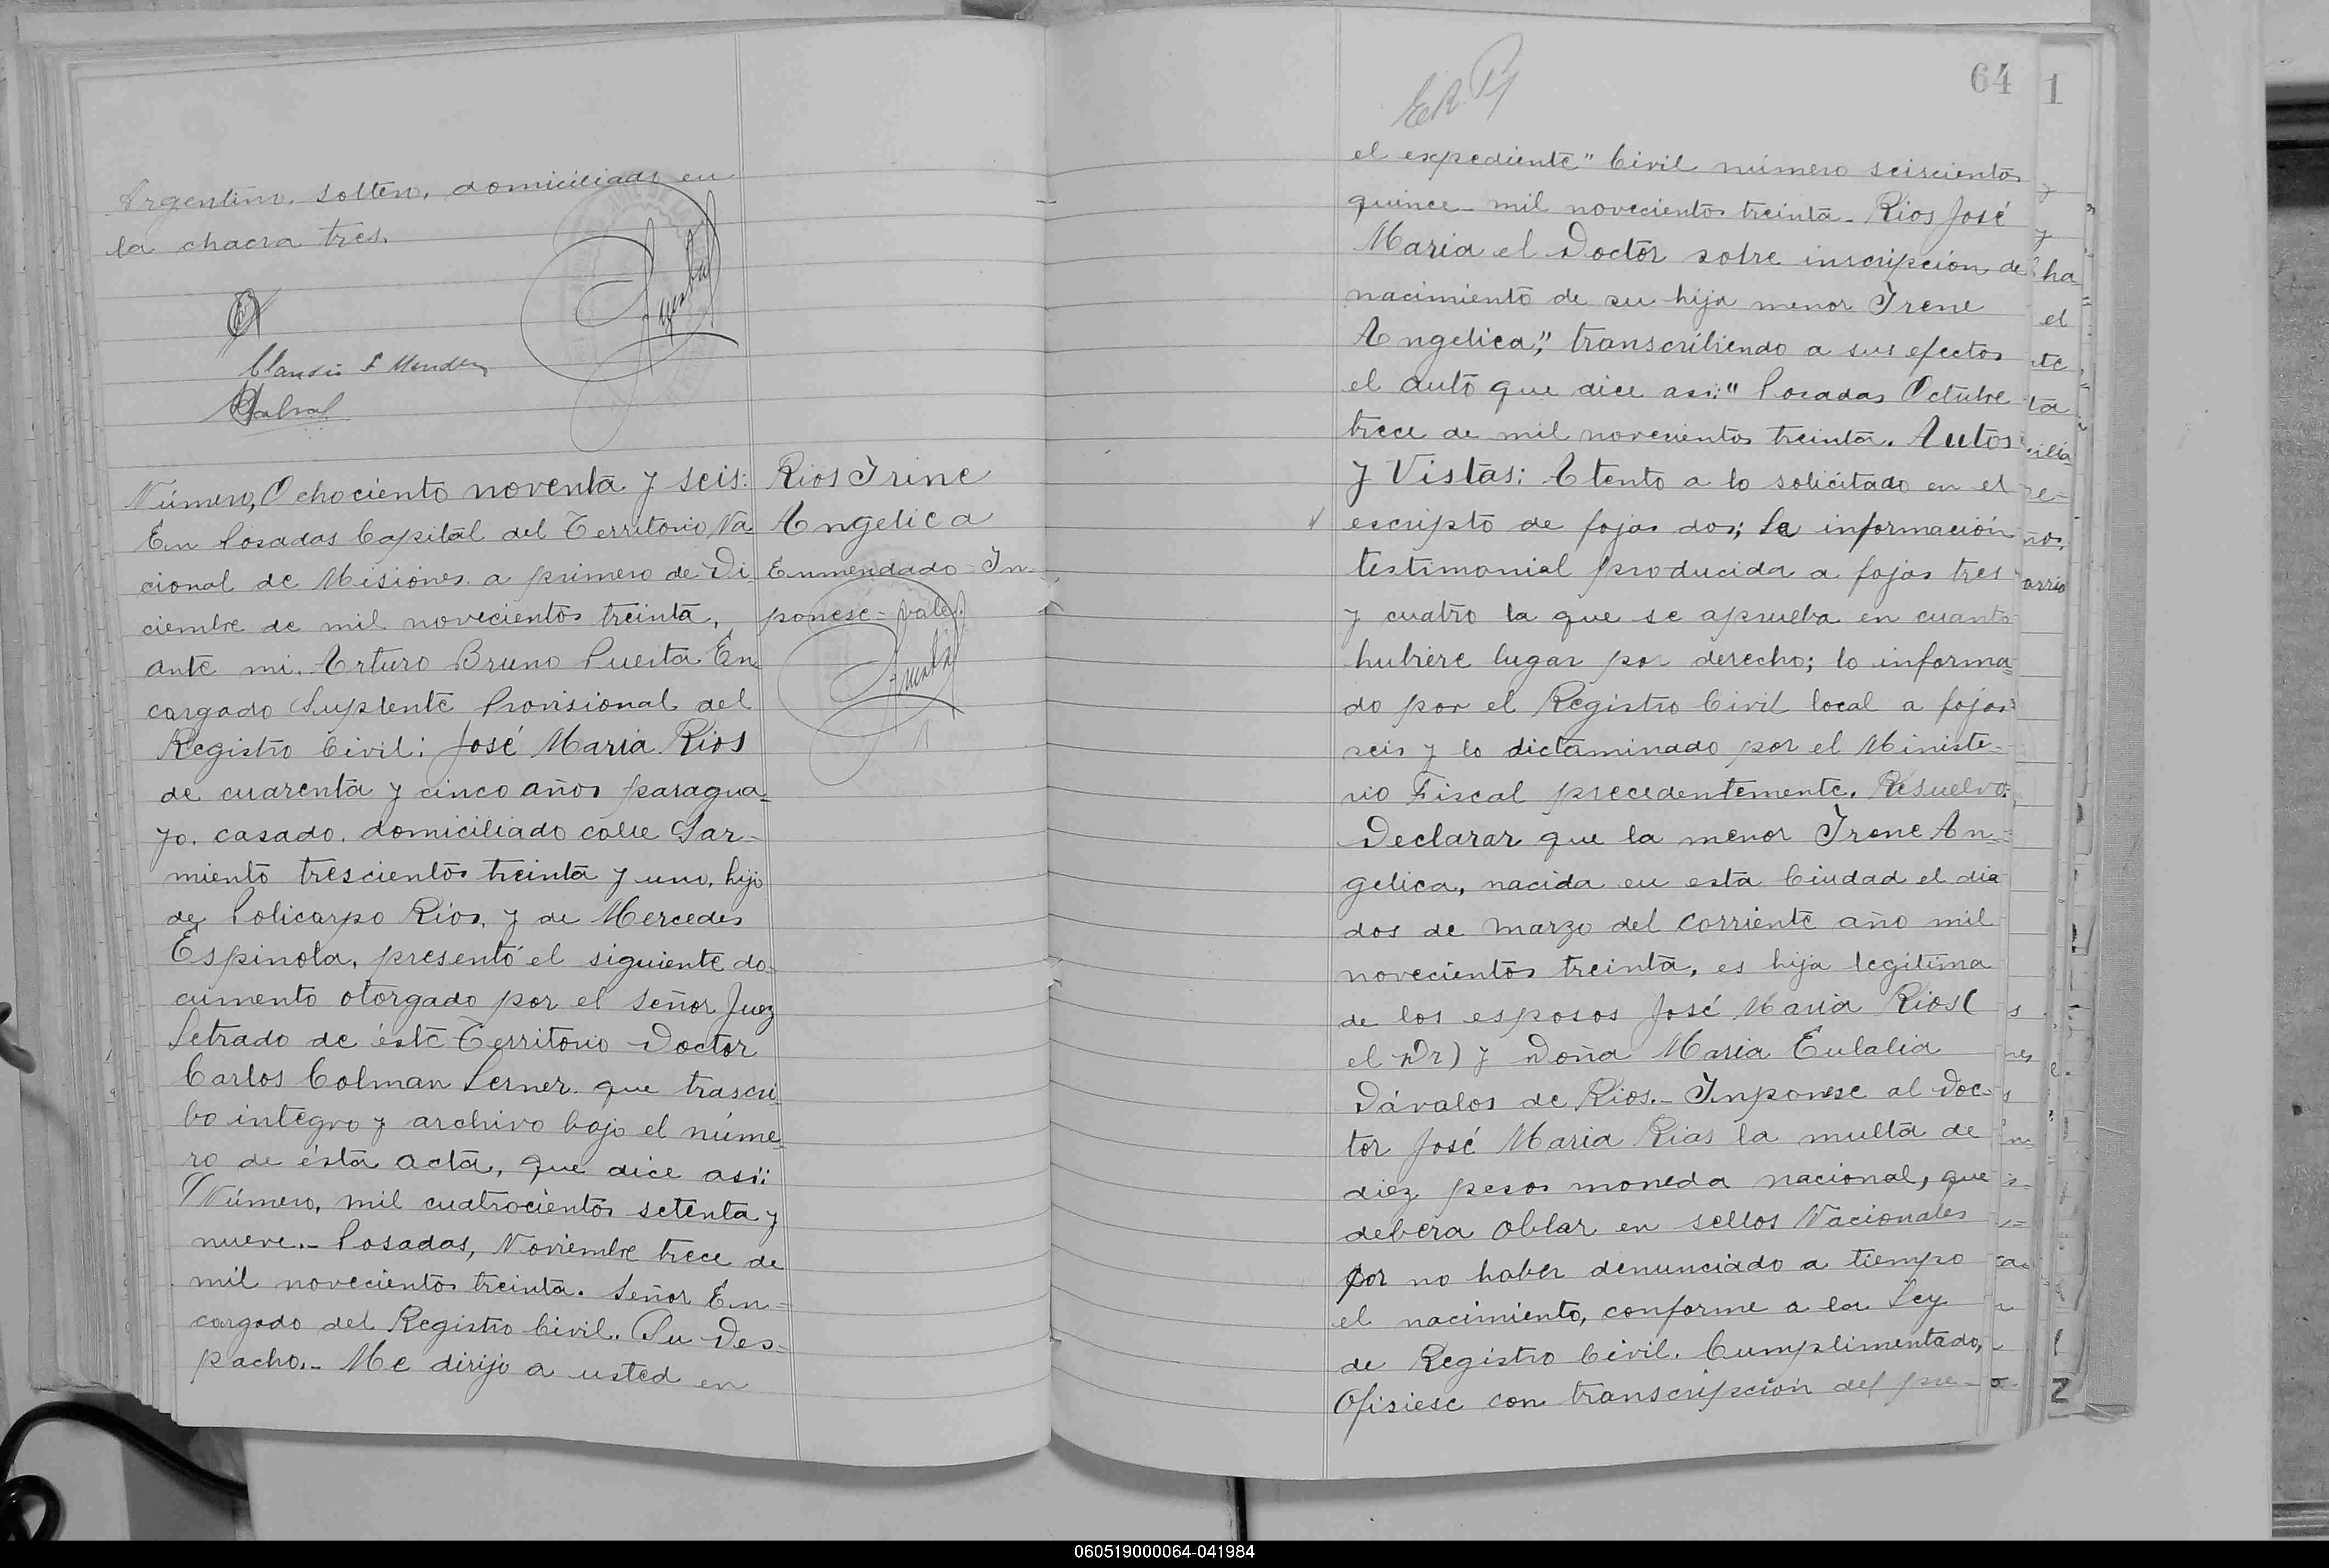 Argentino, soltero, domiciliado en
la chacra tres.
Número, Ochociento noventa y seis:
En Posadas Capital del Territorio Na-
cional de Misiones a primero de Di-
ciembre de mil novecientos treinta,
ante mi, Arturo Bruno Puerta En-
cargado Suplente Provisional del
Registro Civil: José Maria Rios
de cuarenta y cinco años paragua-
yo. casado. domiciliado calle Sar-
miento trescientos treinta y uno, hijo
de Policarpo Rios, y de Mercedes
Espinola, presentó el siguiente do-
cumento otorgado por el señor Juez
Letrado de éste Territorio Doctor
Carlos Colman Lerner que trascri-
bo integro y archivo bajo el núme-
ro de ésta acta, que dice asi:"
Número, mil cuatrocientos setenta y
nueve.- Posadas, Noviembre trece de
mil novecientos treinta. Señor En-
cargado del Registro Civil. Su Des-
pacho.- Me dirijo a usted en
Rios Irine
Angelica
Enmendado-In-
ponese=vale.
64
el expediente" Civil número seiscientos
quince- mil novecientos treinta- Rios José
Maria el Doctor sobre inscripción de
nacimiento de su hija menor Irene
Angelica", transcribiendo a sus efectos
el auto que dice asi:" Posadas Octubre
trece de mil novecientos treinta. Autos
y Vistas: Atento a lo solicitado en el
escripto de fojas dos; la información
testimonial producida a fojas tres
y cuatro la que se aprueba en cuanto
hubiere lugar por derecho; lo informa-
do por el Registro Civil local a fojas
seis y lo dictaminado por el Ministe-
rio Fiscal precedentemente. Resuelvo:
Declarar que la menor Irene An-
gelica, nacida en esta Ciudad el dia
dos de marzo del corriente año mil
novecientos treinta, es hija legitima
de los esposos José Maria Rios (
el Dr) y Doña Maria Eulalia
Dávalos de Rios.- Inponese al Doc-
tor José Maria Rias la multa de
diez pesos moneda nacional, que
debera oblar en sellos Nacionales
por no haber denunciado a tiempo
el nacimiento, conforme a la Ley
de Registro Civil. Cumplimentado,
Ofisiese con transcripción del pre-
1
060519000064-041984